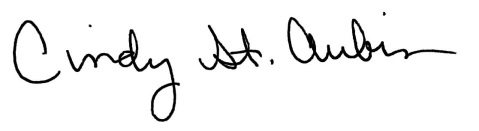 Cindy St. Aubin